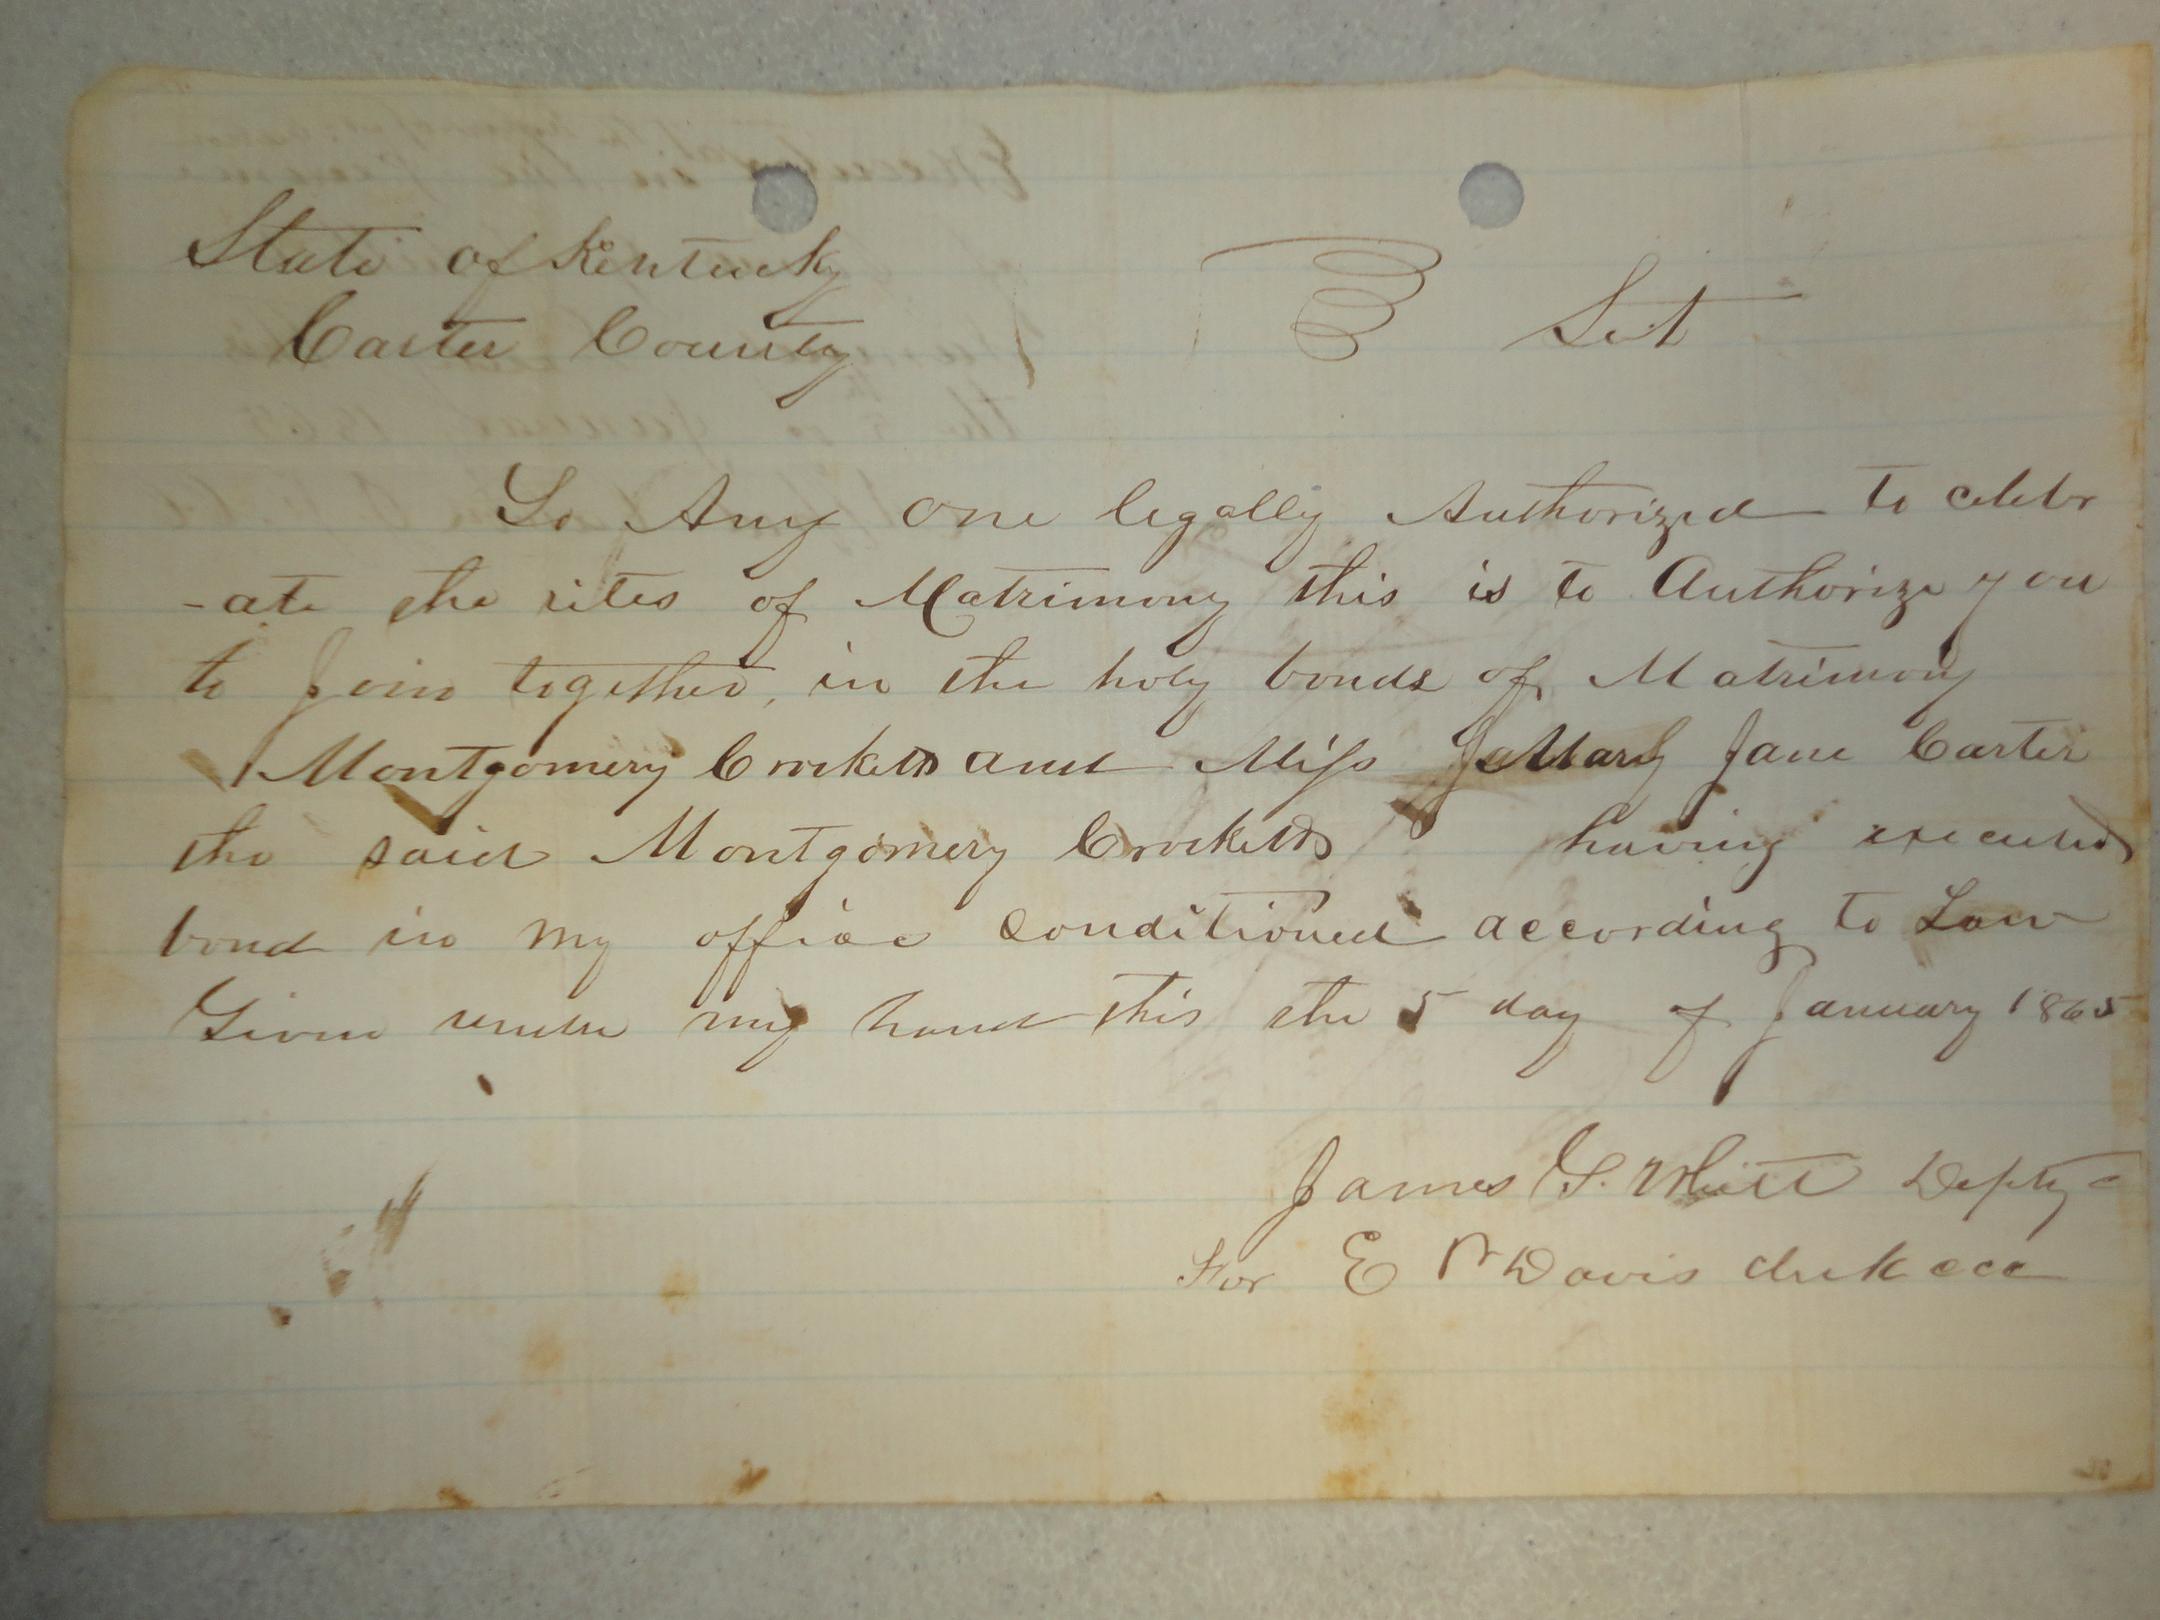 State of Kentucky
Carter County } Sct
To Any One legally Authorized to celebr
-ate the rites of Matrimony this is to Authorize you
to Join together, in the holy bonds of Matrimony
Montgomery Crocketts and Miss Mary Jane Carter
the said Montgomery Crocketts having executed
bond in my office conditioned according to Law
Given under my hand this the 5 day of January 1865
James G. Whitt Depty
For E Davis clerk ccc